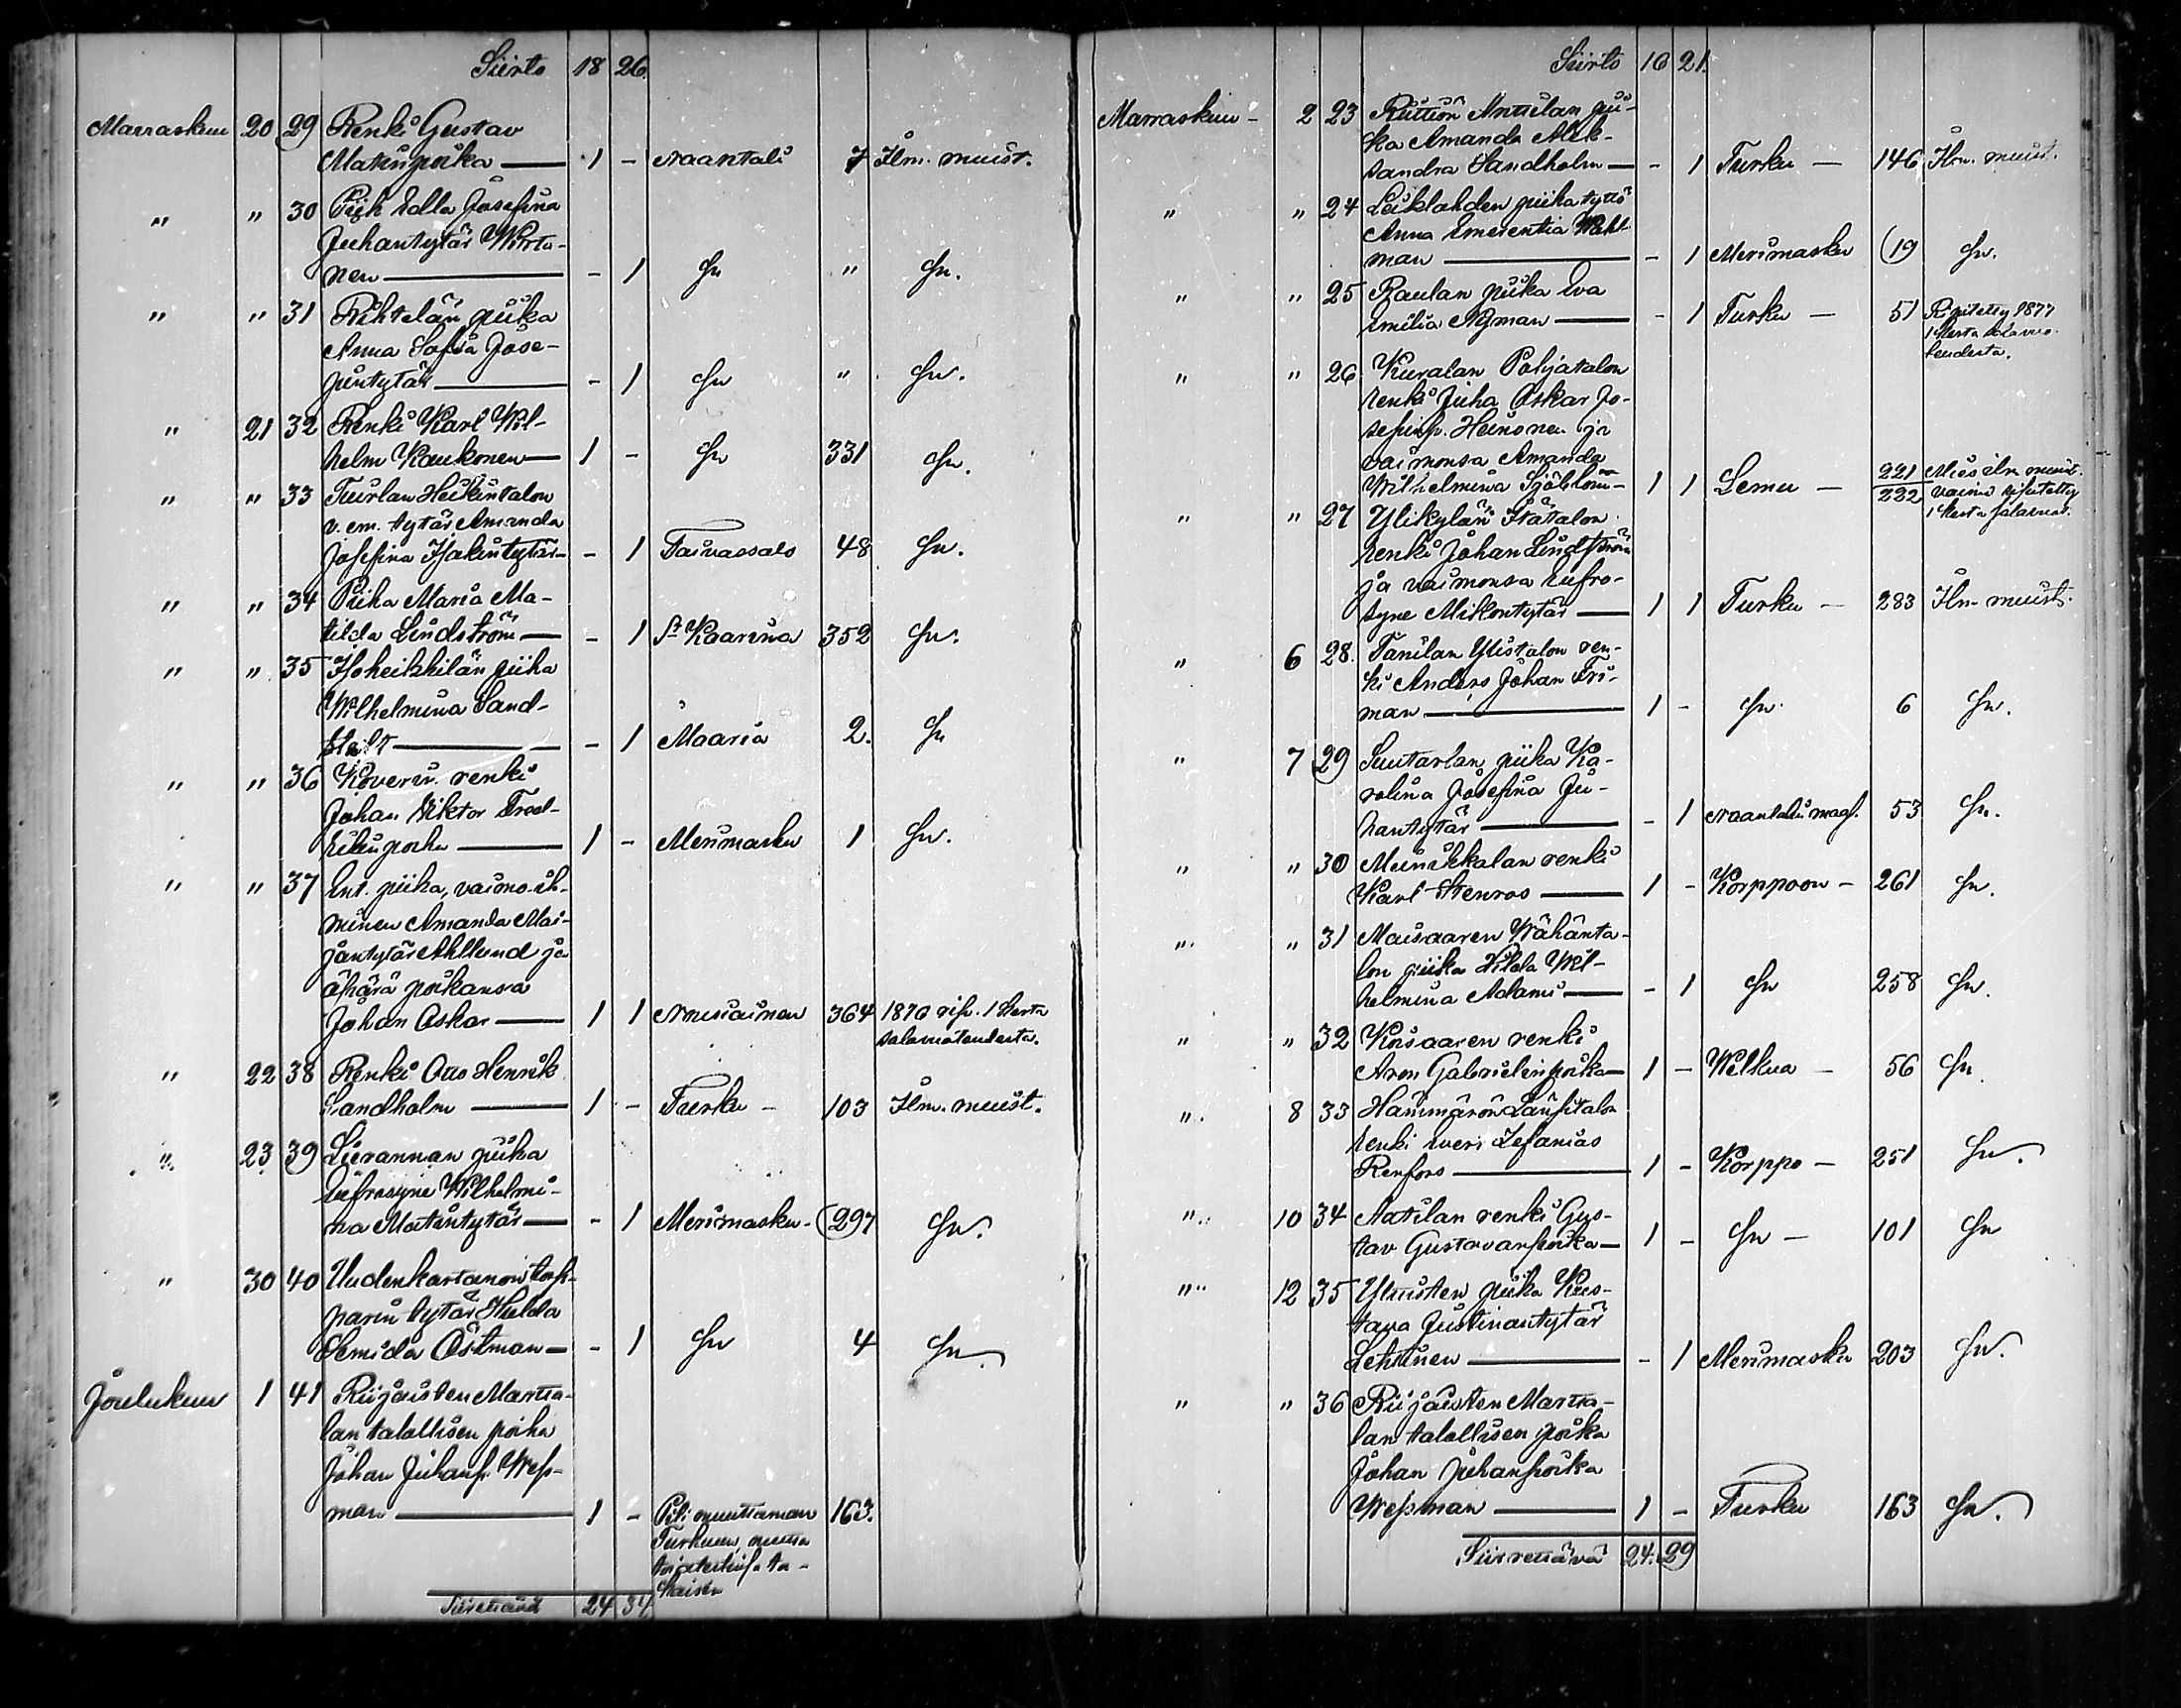 Siirto 18 26.
Marraskuu 20 29 Renki Gustav
Matinpoika — 1 - Naantali 7 Ilm. muist.
" " 30 Piik Edla Josefina
Juhantytär Wirta-
nen — - 1 Sn " Sn.
" " 31 Rihtelän piika
Anna Sofia Jose-
fintytär — - 1 Sn " Sn.
" 21 32 Renki Karl Wil-
helm Kaukonen — 1 - Sn 331 Sn.
" " 33 Tuirlan Heikintalon
v. em. tytär Amanda
Josefina Isakintytär — - 1 Taivassalo 48 Sn.
" " 34 Piika Maria Ma-
tilda Lindström — - 1 St Kaarina 352 Sn.
" " 35 Isoheikkilän piika
Wilhelmina Sand-
— - 1 Maaria 2. Sn
" " 36 Koverin renki
Johan Viktor Fred-
rikinpoika — 1 - Merimasku 1 Sn.
" " 37 Ent. piika, vaimo ih-
minen Amanda Mai-
jantytär Ahllund ja
äpärä poikansa
Johan Oskar — 1 1 Nousiainen 364 1876 rip. 1 kerta
salavuoteudesta.
" 22 38 Renki Otto Henrik
Sandholm — 1 - Turku - 103 Ilm. muist.
" 23 39 Lierannan piika
Eufrosyne Wilhelmi-
na Matintytär — - 1 Merimasku - 297 Sn.
" 30 40 Uudenkartanon torp-
parin tytär Hulda
Semida Östman — - 1 Sn 4 Sn
Joulukuu 1 41 Riijaisten Martta-
lan talollisen poika
Johan Juhanp. Wess-
man — 1 - Piti muuttaman 163.
Turkuun, mutta
ta-
kaisin
Siirrettävä 24 34
Siirto 16 21.
Marraskuu - 2 23 Riittiön Anttilan pii-
ka Amanda Alek-
sandra Sandholm — - 1 Turku — 146 Ilm. muist.
" " 24 Leiklahden piika tyttö
Anna Emerentia Wahl-
man — - 1 Merimasku 19 Sn.
" " 25 Raulan piika Eva
Emilia Nyman — - 1 Turku — 51 Ripitetty 1877
1 kerta salavuo-
teudesta.
" " 26 Kuralan Pohjatalon
renki Juha Oskar Jo-
sefinp. Heinonen ja
vaimonsa Amanda
Wilhelmina Sjöblom — 1 1 Lemu — 221 Mies ilm muist.
222 vaimo ripitetty
1 kerta salavuot.
" " 27 Ylikylän Itätalon
renki Johan Lindström
ja vaimonsa Eufro-
syne Mikkontytär — 1 1 Turku — 283 Ilm muist.
" 6 28. Tanilan Ylistalon ren-
ki Anders Johan Fri-
man — 1 - Sn 6 Sn.
" 7 29 Suutarlan piika Ka-
rolina Josefina Ju-
hantytär — - 1 Naantalin maas. 53 Sn.
" " 30 Munikkalan renki
Karl Stenros — 1 - Korppoon - 261 Sn.
" " 31 Maisaaren Wähänta-
lon piika Hilda Wil-
helmina Adami — - 1 Sn 258 Sn.
" " 32 Koisaaren renki
Aron Gabrielinpoika — 1 - Welkua — 56 Sn
" 8 33 Hämmärön Länsitalon
renki Iver Zefanias
Renfors — 1 - Korppo — 251 Sn.
" 10 34 Aatilan renki Gus-
tav Gustavanpoika — 1 - Sn — 101 Sn
" 12 35 Yttuisten piika Kus-
tava Justinantytär
Lehtinen — - 1 Merimasku 203 Sn.
" " 36 Riijaisten Martta-
lan talollisen poika
Johan Juhanpoika
Wessman — 1 - Turku 163 Sn.
Siirrettävä 24. 29